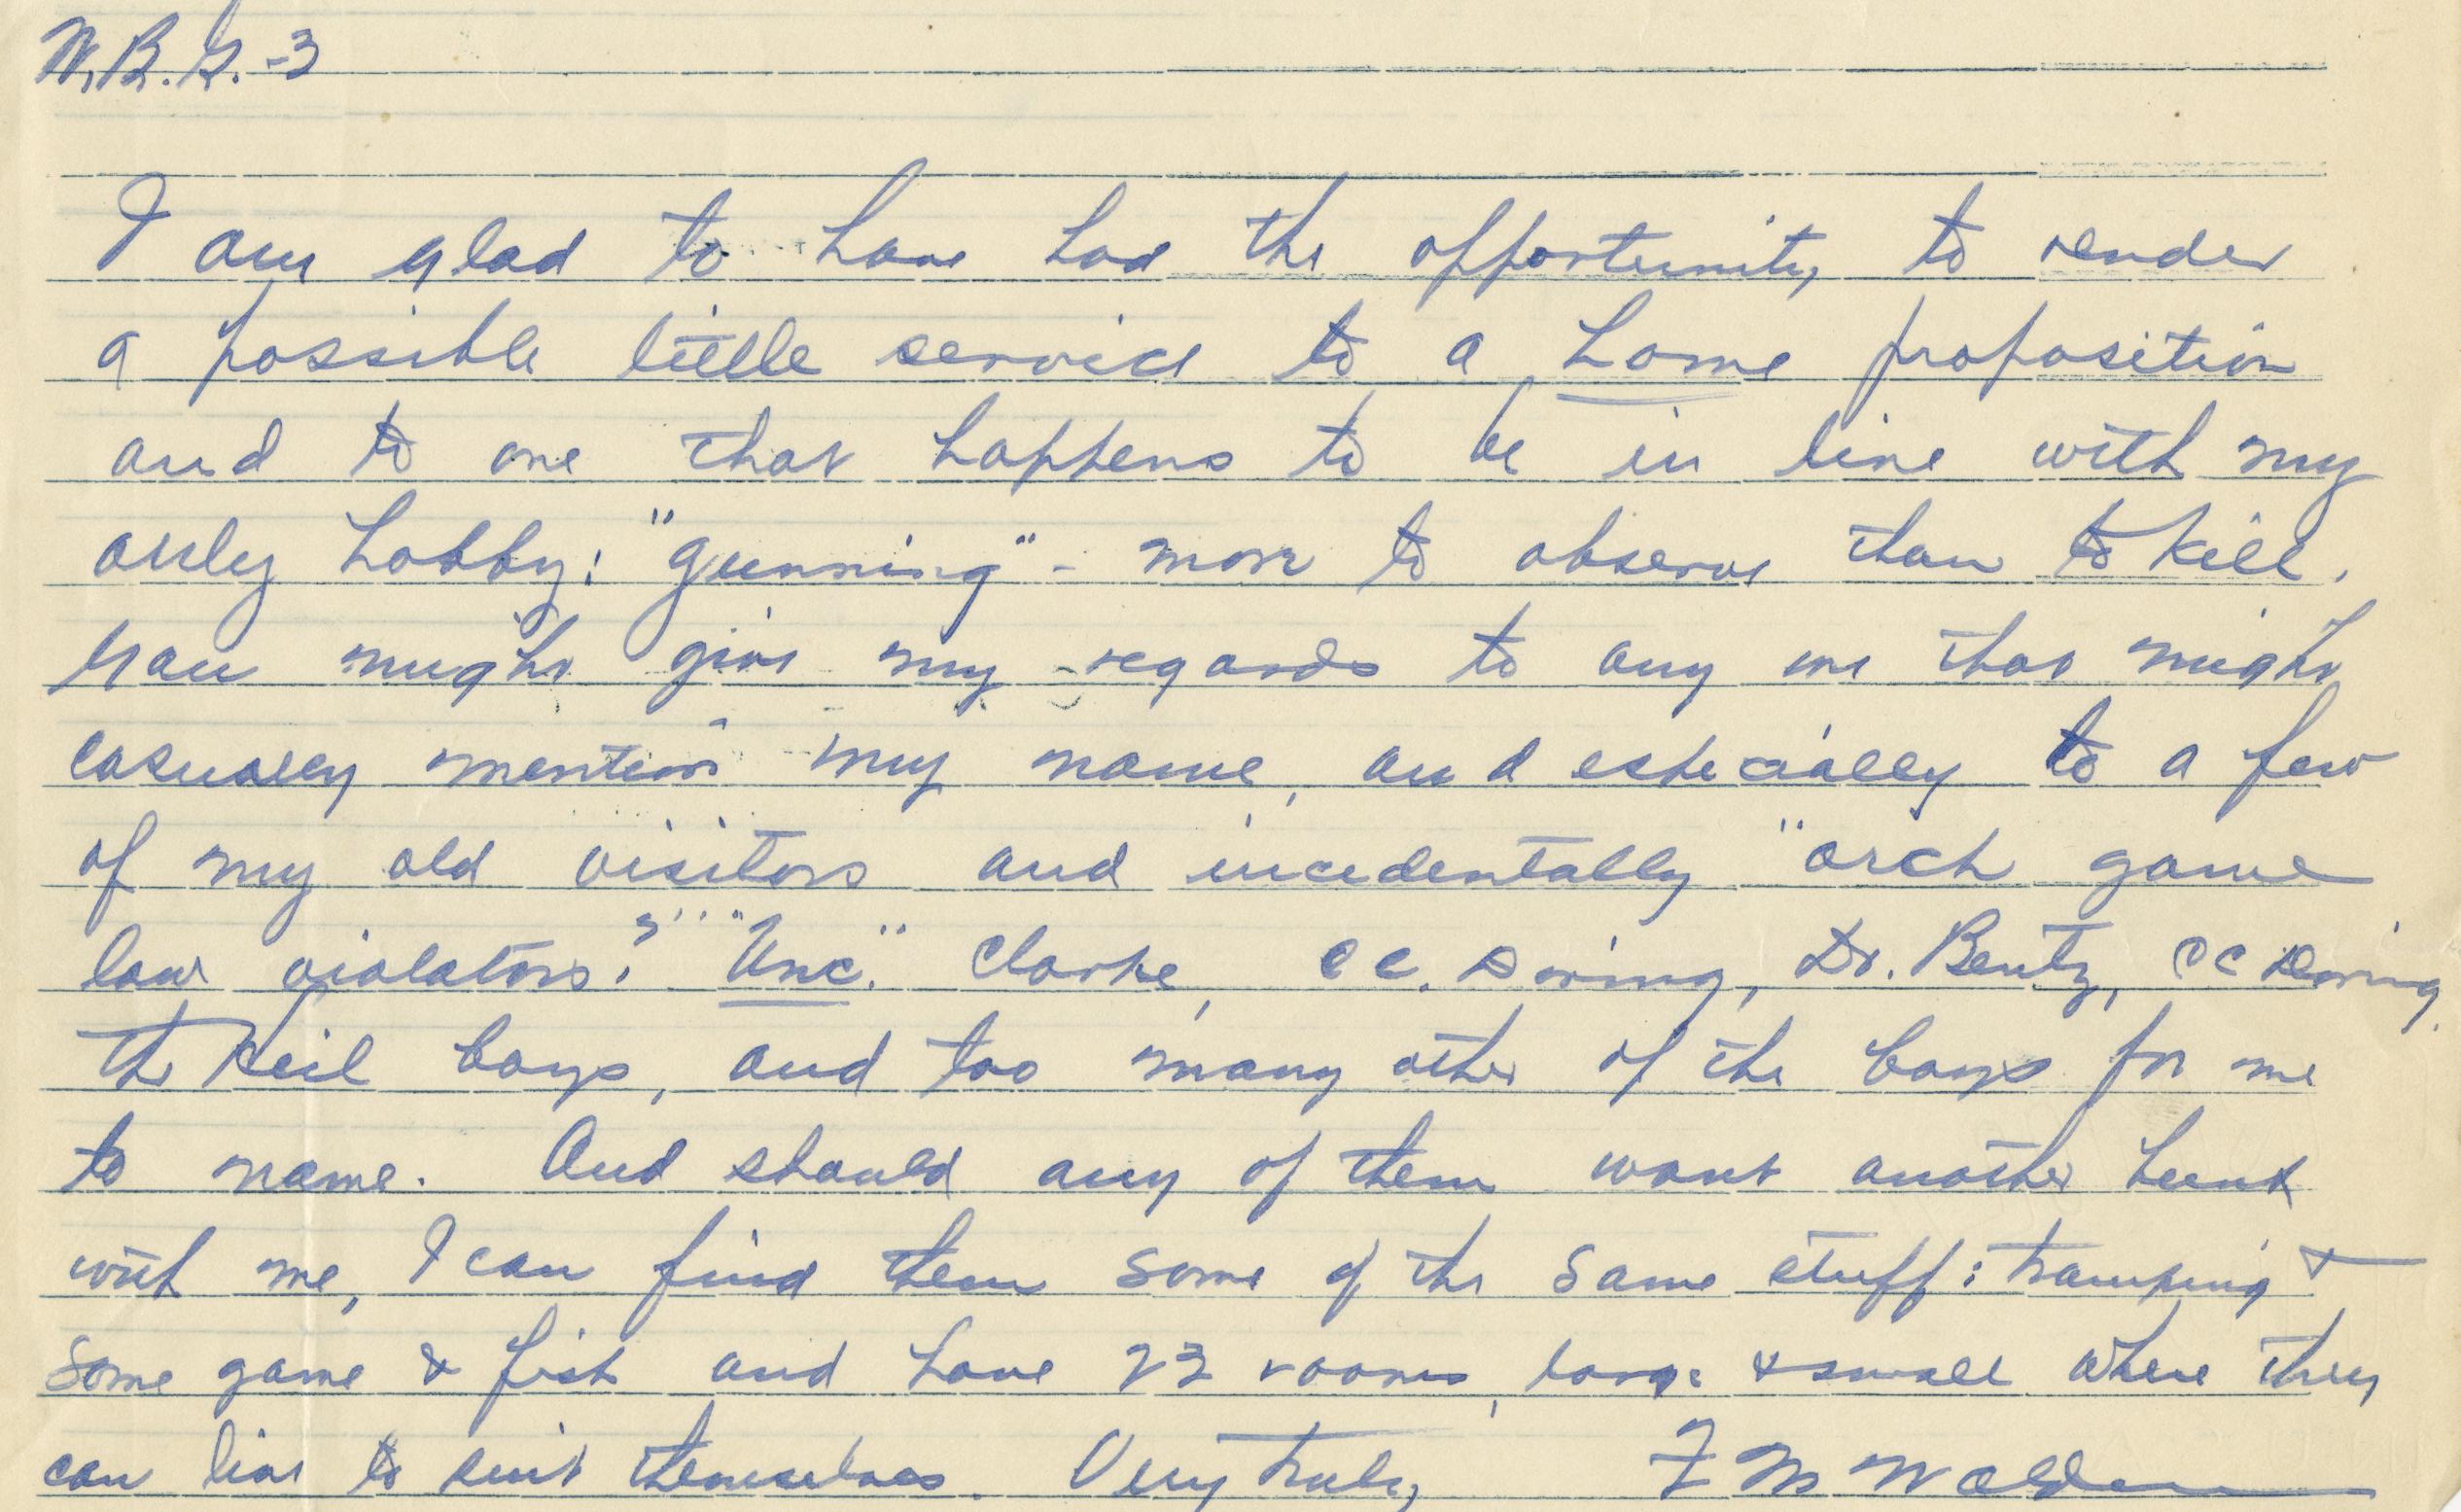 W.B.R.-3
I am glad to have had the opportunity to render
a possible little service to a home proposition
and to one that happens to be in line with my
only hobby: "gunning" - more to observe than to kill.
You might give my regards to any one that might
casually mention my name, and especially to a few
of my old visitors and incidentally "arch game
law violators": "Unc." Clarke, C C. Doring, Dr. Bentz, C C Doring,
the Keil boys, and too many other of the boys for me
to name. And should any of them want another hunt
with me, I can find them some of the same stuff: tramping &
some game & fish and have 23 rooms, large & small where they
can live to suit themselves. Very truly, F M Walden